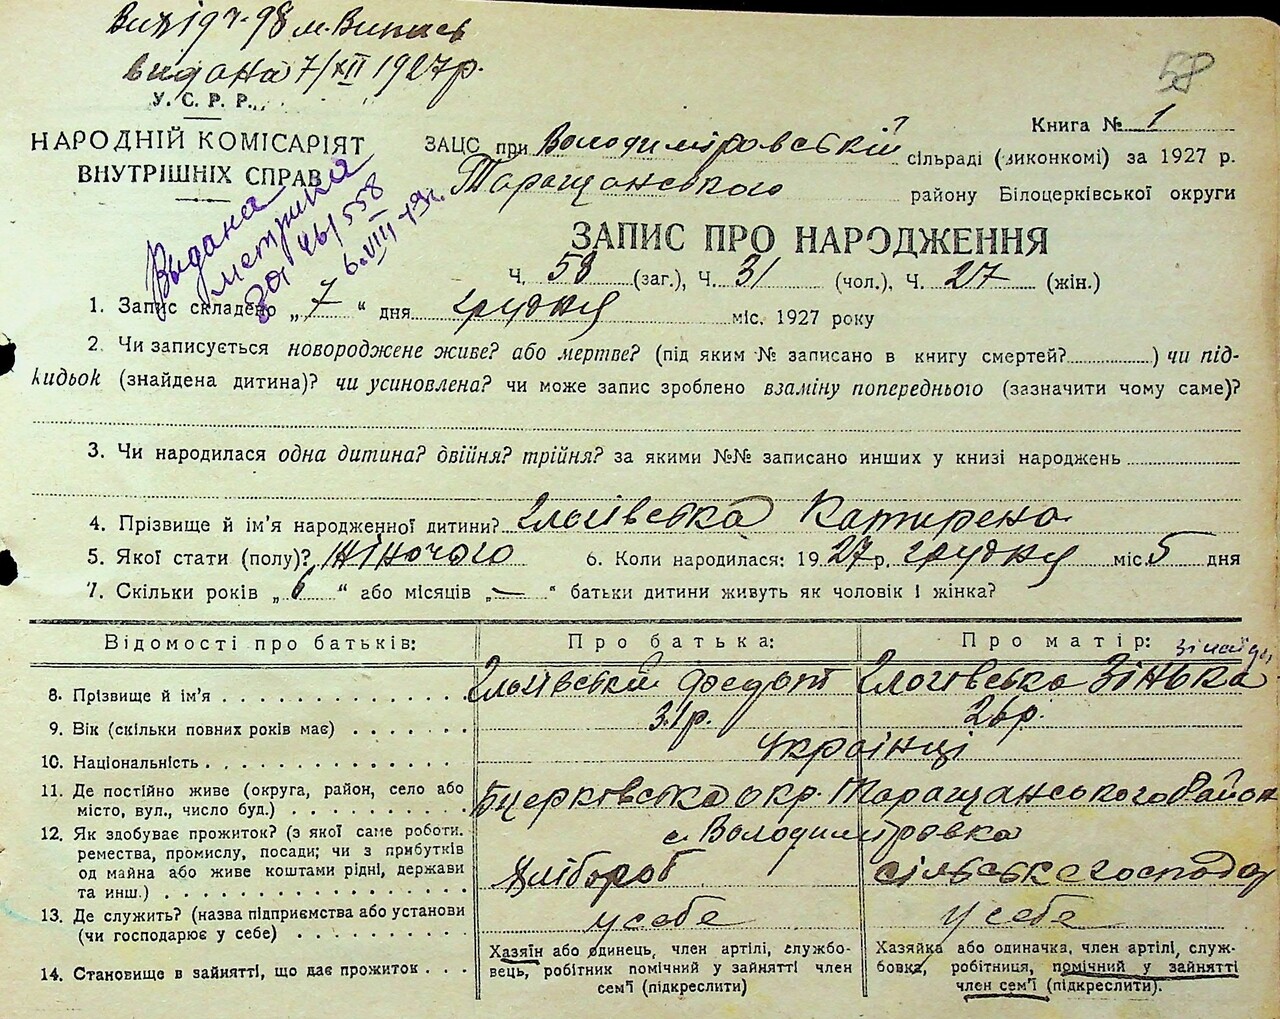 Витяг ч. 98 м. Випись
видана 7/XII 1927 р.
58
У. С. Р. Р.
НАРОДНІЙ КОМІСАРІЯТ
ВНУТРІШНІХ СПРАВ
Выдана
метрика
461558
6.VIII
Книга № 1
ЗАЦС при Володиміровській сільраді (виконкомі) за 1927 р.
Таращанського району Білоцерківської округи
ЗАПИС ПРО НАРОДЖЕННЯ
Ч. 58 (заг.), Ч. 31 (чол.), Ч. 27 (жін.)
1. Запис складено „7“ дня грудня міс. 1927 року
2. Чи записується новороджене живе? або мертве? (під яким № записано в книгу смертей?) чи під-
кидьок (знайдена дитина)? чи усиновлена? чи може запис зроблено взаміну попереднього (зазначити чому саме)?
3. Чи народилася одна дитина? двійня? трійня? за якими №№ записано инших у книзі народжень
4. Прізвище й ім'я народженної дитини? Ільківська Катирена
5. Якої стати (полу)? жіночого 6. Коли народилася: 1927 р. грудня міс. 5 дня
7. Скільки років „6“ або місяців „—“ батьки дитини живуть як чоловік і жінка?
Відомості про батьків: Про батька: Про матір:
8. Прізвище й ім'я Ільківській Федот Ільківська Зінька
9. Вік (скільки повних років має) 31 р. 26 р.
10. Національність українці
11. Де постійно живе (округа, район, село або
місто, вул., число буд.) Бцерковська окр. Таращанського Район
с. Володиміровка
12. Як здобуває прожиток? (з якої саме роботи.
ремества, промислу, посади; чи з прибутків
од майна або живе коштами рідні, держави
та инш.) Хлібороб сільське господар
13. Де служить? (назва підприємства або установи
(чи господарює у себе) у себе у себе
14. Становище в зайнятті, що дає прожиток
Хазяїн або одинець, член артілі, службо-
вець, робітник помічний у зайнятті член
сем'ї (підкреслити)
Хазяйка або одиначка, член артілі, служ-
бовка, робітниця, помічний у зайнятті
член сем'ї (підкреслити).